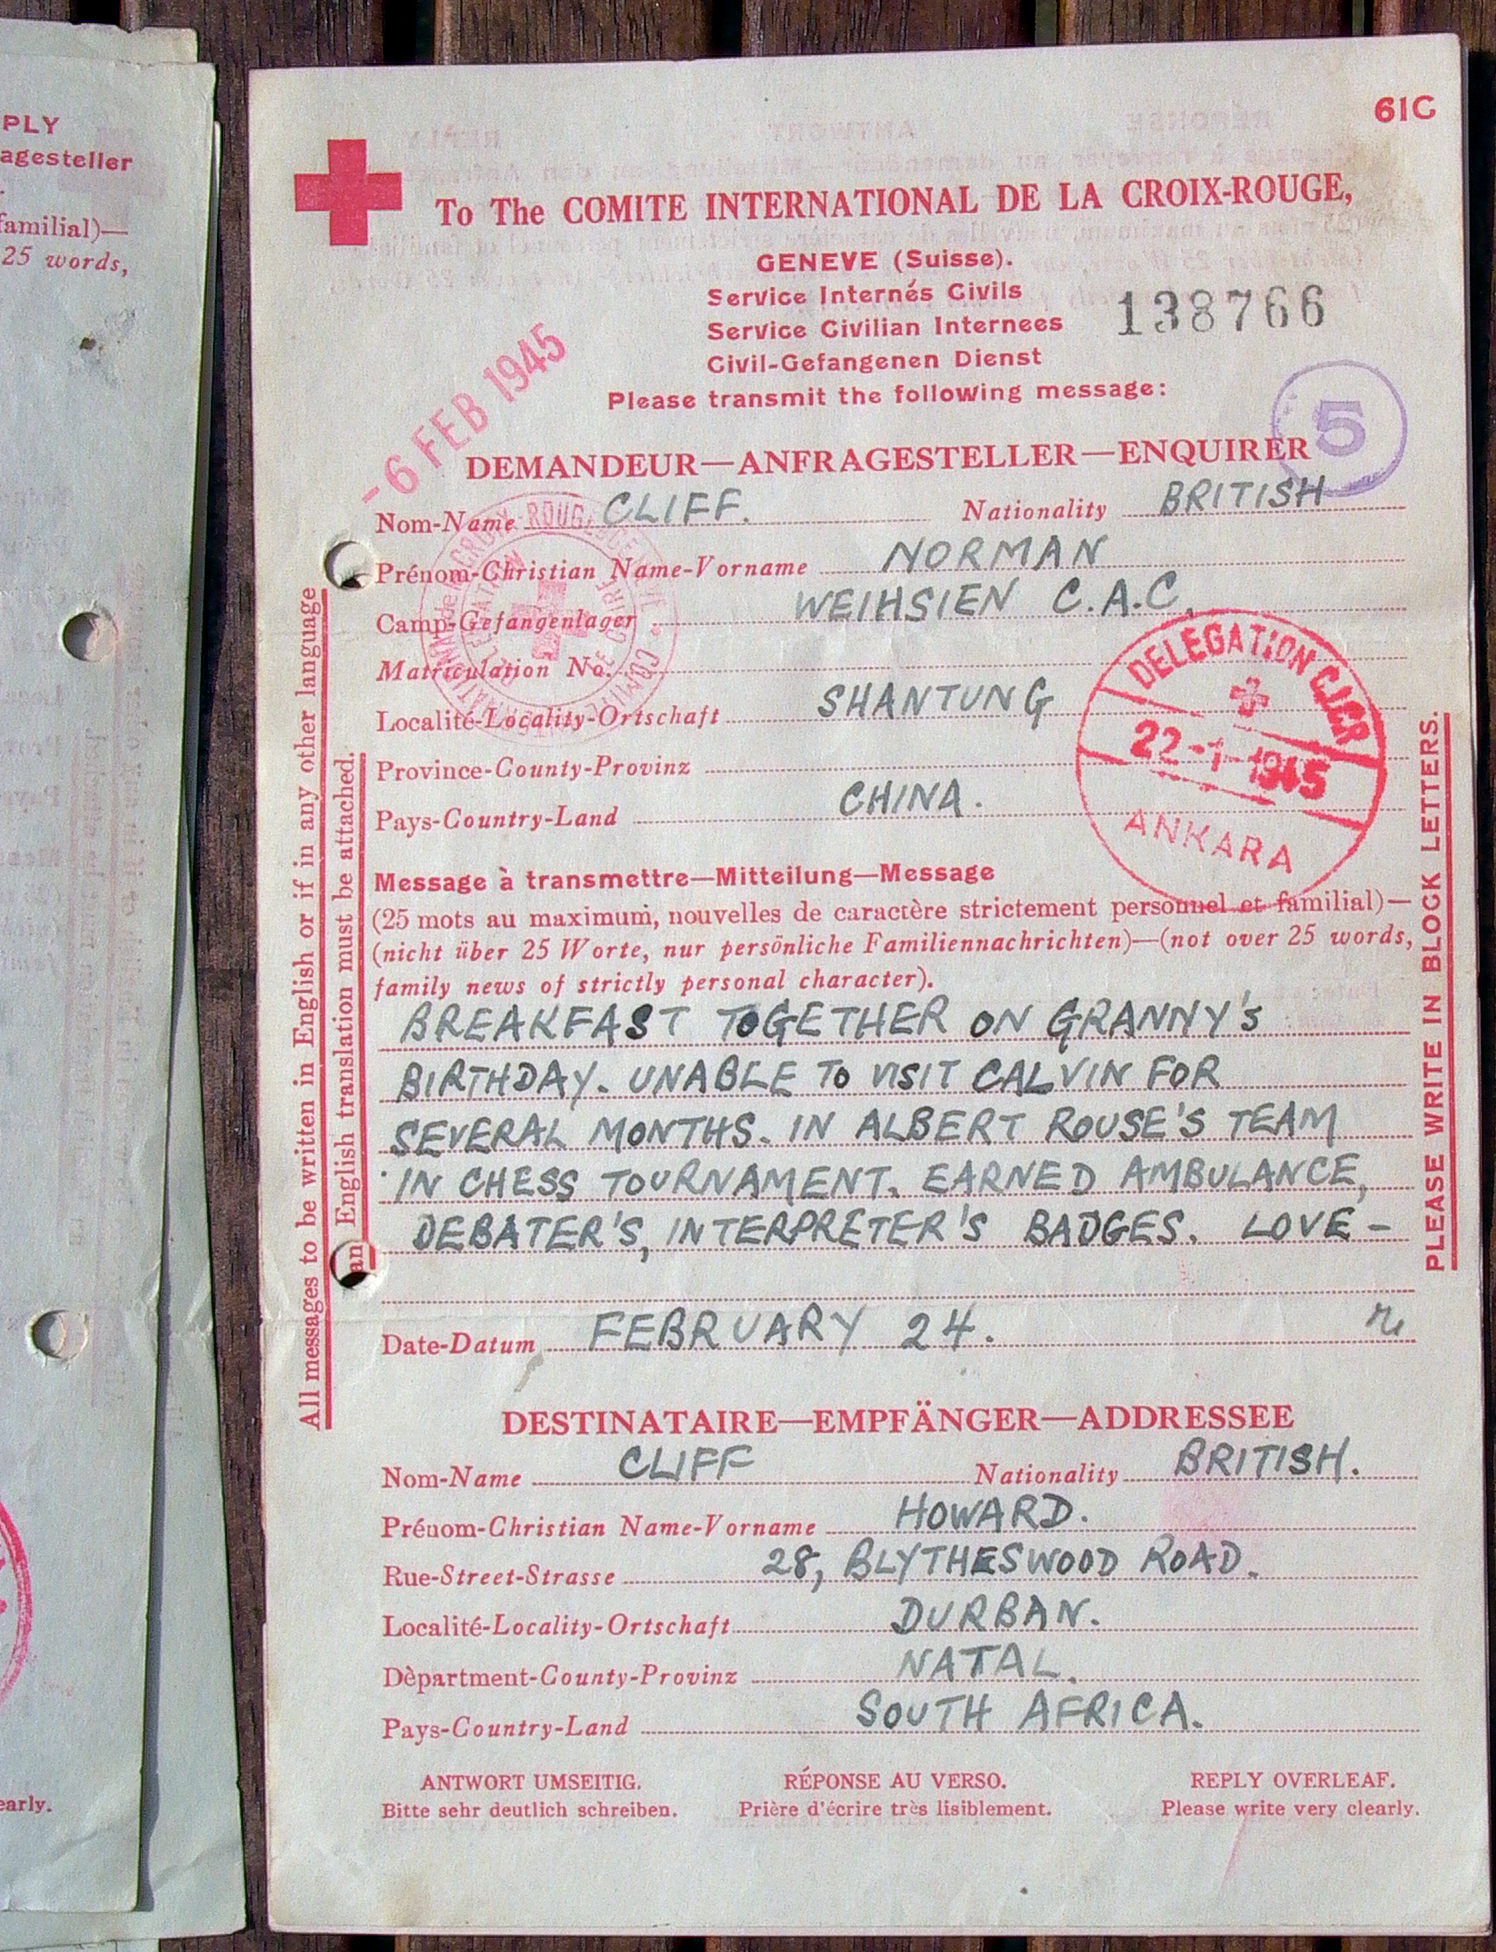 PLY
agesteller
familial)—
25 words,
early.
61C
To The COMITE INTERNATIONAL DE LA CROIX-ROUGE,
GENEVE (Suisse).
Service Internés Civils
Service Civilian Internees
138766
Civil-Gefangenen Dienst
Please transmit the following message:
-6 FEB 1945
5
DEMANDEUR—ANFRAGESTELLER—ENQUIRER
Nom-Name CLIFF. Nationality BRITISH
Prénom-Christian Name-Vorname NORMAN
Camp-Gefangenlager WEIHSIEN C.A.C.
Matriculation No.
Localité-Locality-Ortschaft SHANTUNG
Province-County-Provinz
Pays-Country-Land CHINA.
DELEGATION C.I.C.R
22-1-1945
ANKARA
Message à transmettre—Mitteilung—Message
(25 mots au maximum, nouvelles de caractère strictement personnel et familial)—
(nicht über 25 Worte, nur persönliche Familiennachrichten)—(not over 25 words,
family news of strictly personal character).
BREAKFAST TOGETHER ON GRANNY'S
BIRTHDAY. UNABLE TO VISIT CALVIN FOR
SEVERAL MONTHS. IN ALBERT ROUSE'S TEAM
IN CHESS TOURNAMENT. EARNED AMBULANCE,
DEBATER'S, INTERPRETER'S BADGES. LOVE -
Date-Datum FEBRUARY 24.
All messages to be written in English or if in any other language
an English translation must be attached.
PLEASE WRITE IN BLOCK LETTERS.
DESTINATAIRE—EMPFÄNGER—ADDRESSEE
Nom-Name CLIFF Nationality BRITISH.
Prénom-Christian Name-Vorname HOWARD.
Rue-Street-Strasse 28, BLYTHESWOOD ROAD.
Localité-Locality-Ortschaft DURBAN.
Dèpartment-County-Provinz NATAL.
Pays-Country-Land SOUTH AFRICA.
ANTWORT UMSEITIG. RÉPONSE AU VERSO. REPLY OVERLEAF.
Bitte sehr deutlich schreiben. Prière d'écrire très lisiblement. Please write very clearly.